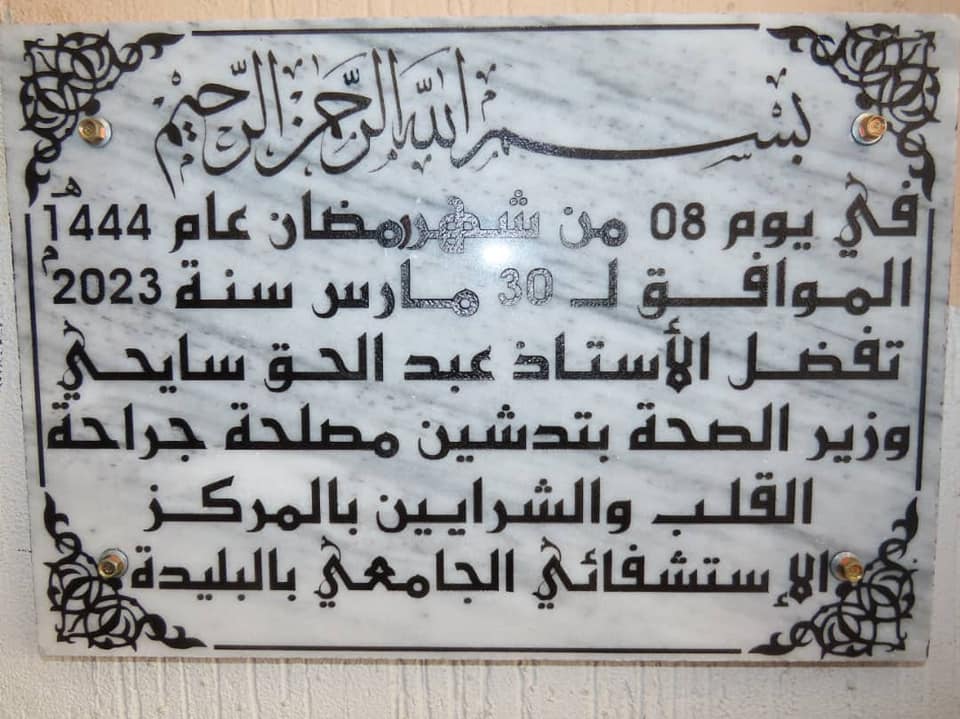 بسم الله الرحمن الرحيم
في يوم 08 من شهر رمضان عام 1444 هـ
الموافق لـ 30 مارس سنة 2023 م
تفضل الأستاذ عبد الحق سايحي
وزير الصحة بتدشين مصلحة جراحة
القلب والشرايين بالمركز
الإستشفائي الجامعي بالبليدة